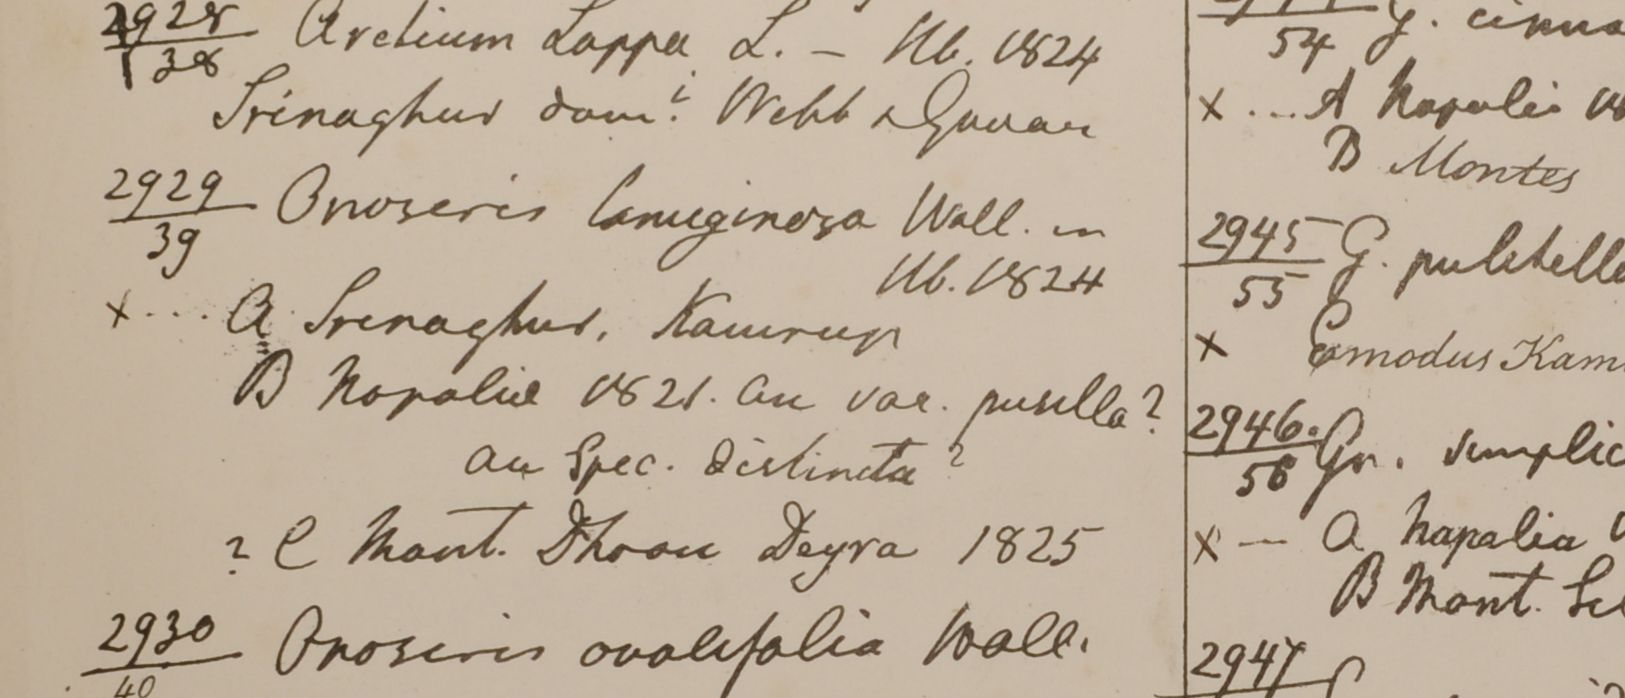 2928 Arctium Lappa L. – Hb. 1824
38
Srinaghur dom? Webb & Govan
2929 Onoseris lanuginosa Wall. in
39
Hb. 1824
x ... A Srenaghur, Kamrup
B Napalia 1821. an var. pusilla?
an Spec. distincta?
? C Mont. Dhoon Deyra 1825
2930 Onoseris ovalifolia Wall.
40
54 G.
x ... A Napalia
B Montes
2945 G.
55
x Emodus Kam
2946. Gn.
56
x — A Napalia
B Mont.
2947